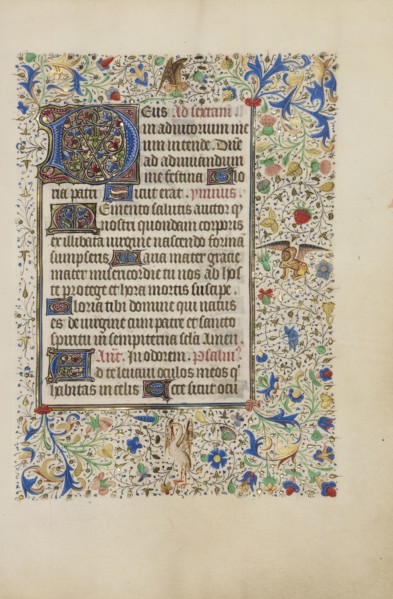 Deus Ad sextam
in adiutorium me
um intende. Dne
ad adiuvandum
me festina Glo
ria patri Sicut erat. ymnus.
Memento salutis auctor q
nostri quondam corporis
ex illibata virgine nascendo formā
sumpseris Maria mater gracie
mater misericordie tu nos ab hos
te protege et hora mortis suscipe
Gloria tibi domine qui natus
es de virgine cum patre et sancto
spiritu in sempiterna secla Amen
Ant. In odorem. Psalm
Ad te levavi oculos meos q
habitas in celis Ecce sicut ocu